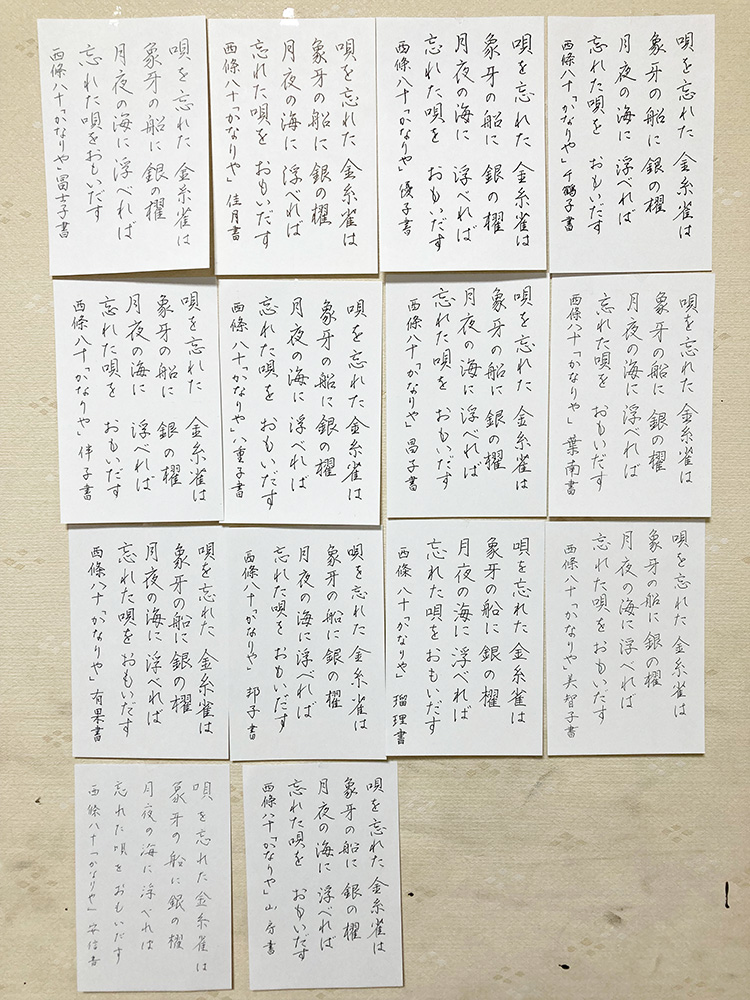 唄を忘れた 金糸雀は
象牙の船に 銀の櫂
月夜の海に 浮べれば
忘れた唄を おもいだす
西條八十「かなりや」千鶴子書
唄を忘れた 金糸雀は
象牙の船に 銀の櫂
月夜の海に 浮べれば
忘れた唄を おもいだす
西條八十「かなりや」優子書
唄を忘れた 金糸雀は
象牙の船に 銀の櫂
月夜の海に 浮べれば
忘れた唄を おもいだす
西條八十「かなりや」佳月書
唄を忘れた 金糸雀は
象牙の船に 銀の櫂
月夜の海に 浮べれば
忘れた唄を おもいだす
西條八十「かなりや」冨士子書
唄を忘れた 金糸雀は
象牙の船に 銀の櫂
月夜の海に 浮べれば
忘れた唄を おもいだす
西條八十「かなりや」葉南書
唄を忘れた 金糸雀は
象牙の船に 銀の櫂
月夜の海に 浮べれば
忘れた唄を おもいだす
西條八十「かなりや」昌子書
唄を忘れた 金糸雀は
象牙の船に 銀の櫂
月夜の海に 浮べれば
忘れた唄を おもいだす
西條八十「かなりや」八重子書
唄を忘れた 金糸雀は
象牙の船に 銀の櫂
月夜の海に 浮べれば
忘れた唄を おもいだす
西條八十「かなりや」伴子書
唄を忘れた 金糸雀は
象牙の船に 銀の櫂
月夜の海に 浮べれば
忘れた唄を おもいだす
西條八十「かなりや」美智子書
唄を忘れた 金糸雀は
象牙の船に 銀の櫂
月夜の海に 浮べれば
忘れた唄を おもいだす
西條八十「かなりや」瑠理書
唄を忘れた 金糸雀は
象牙の船に 銀の櫂
月夜の海に 浮べれば
忘れた唄を おもいだす
西條八十「かなりや」邦子書
唄を忘れた 金糸雀は
象牙の船に 銀の櫂
月夜の海に 浮べれば
忘れた唄を おもいだす
西條八十「かなりや」有果書
唄を忘れた 金糸雀は
象牙の船に 銀の櫂
月夜の海に 浮べれば
忘れた唄を おもいだす
西條八十「かなりや」
唄を忘れた 金糸雀は
象牙の船に 銀の櫂
月夜の海に 浮べれば
忘れた唄を おもいだす
西條八十「かなりや」安信書